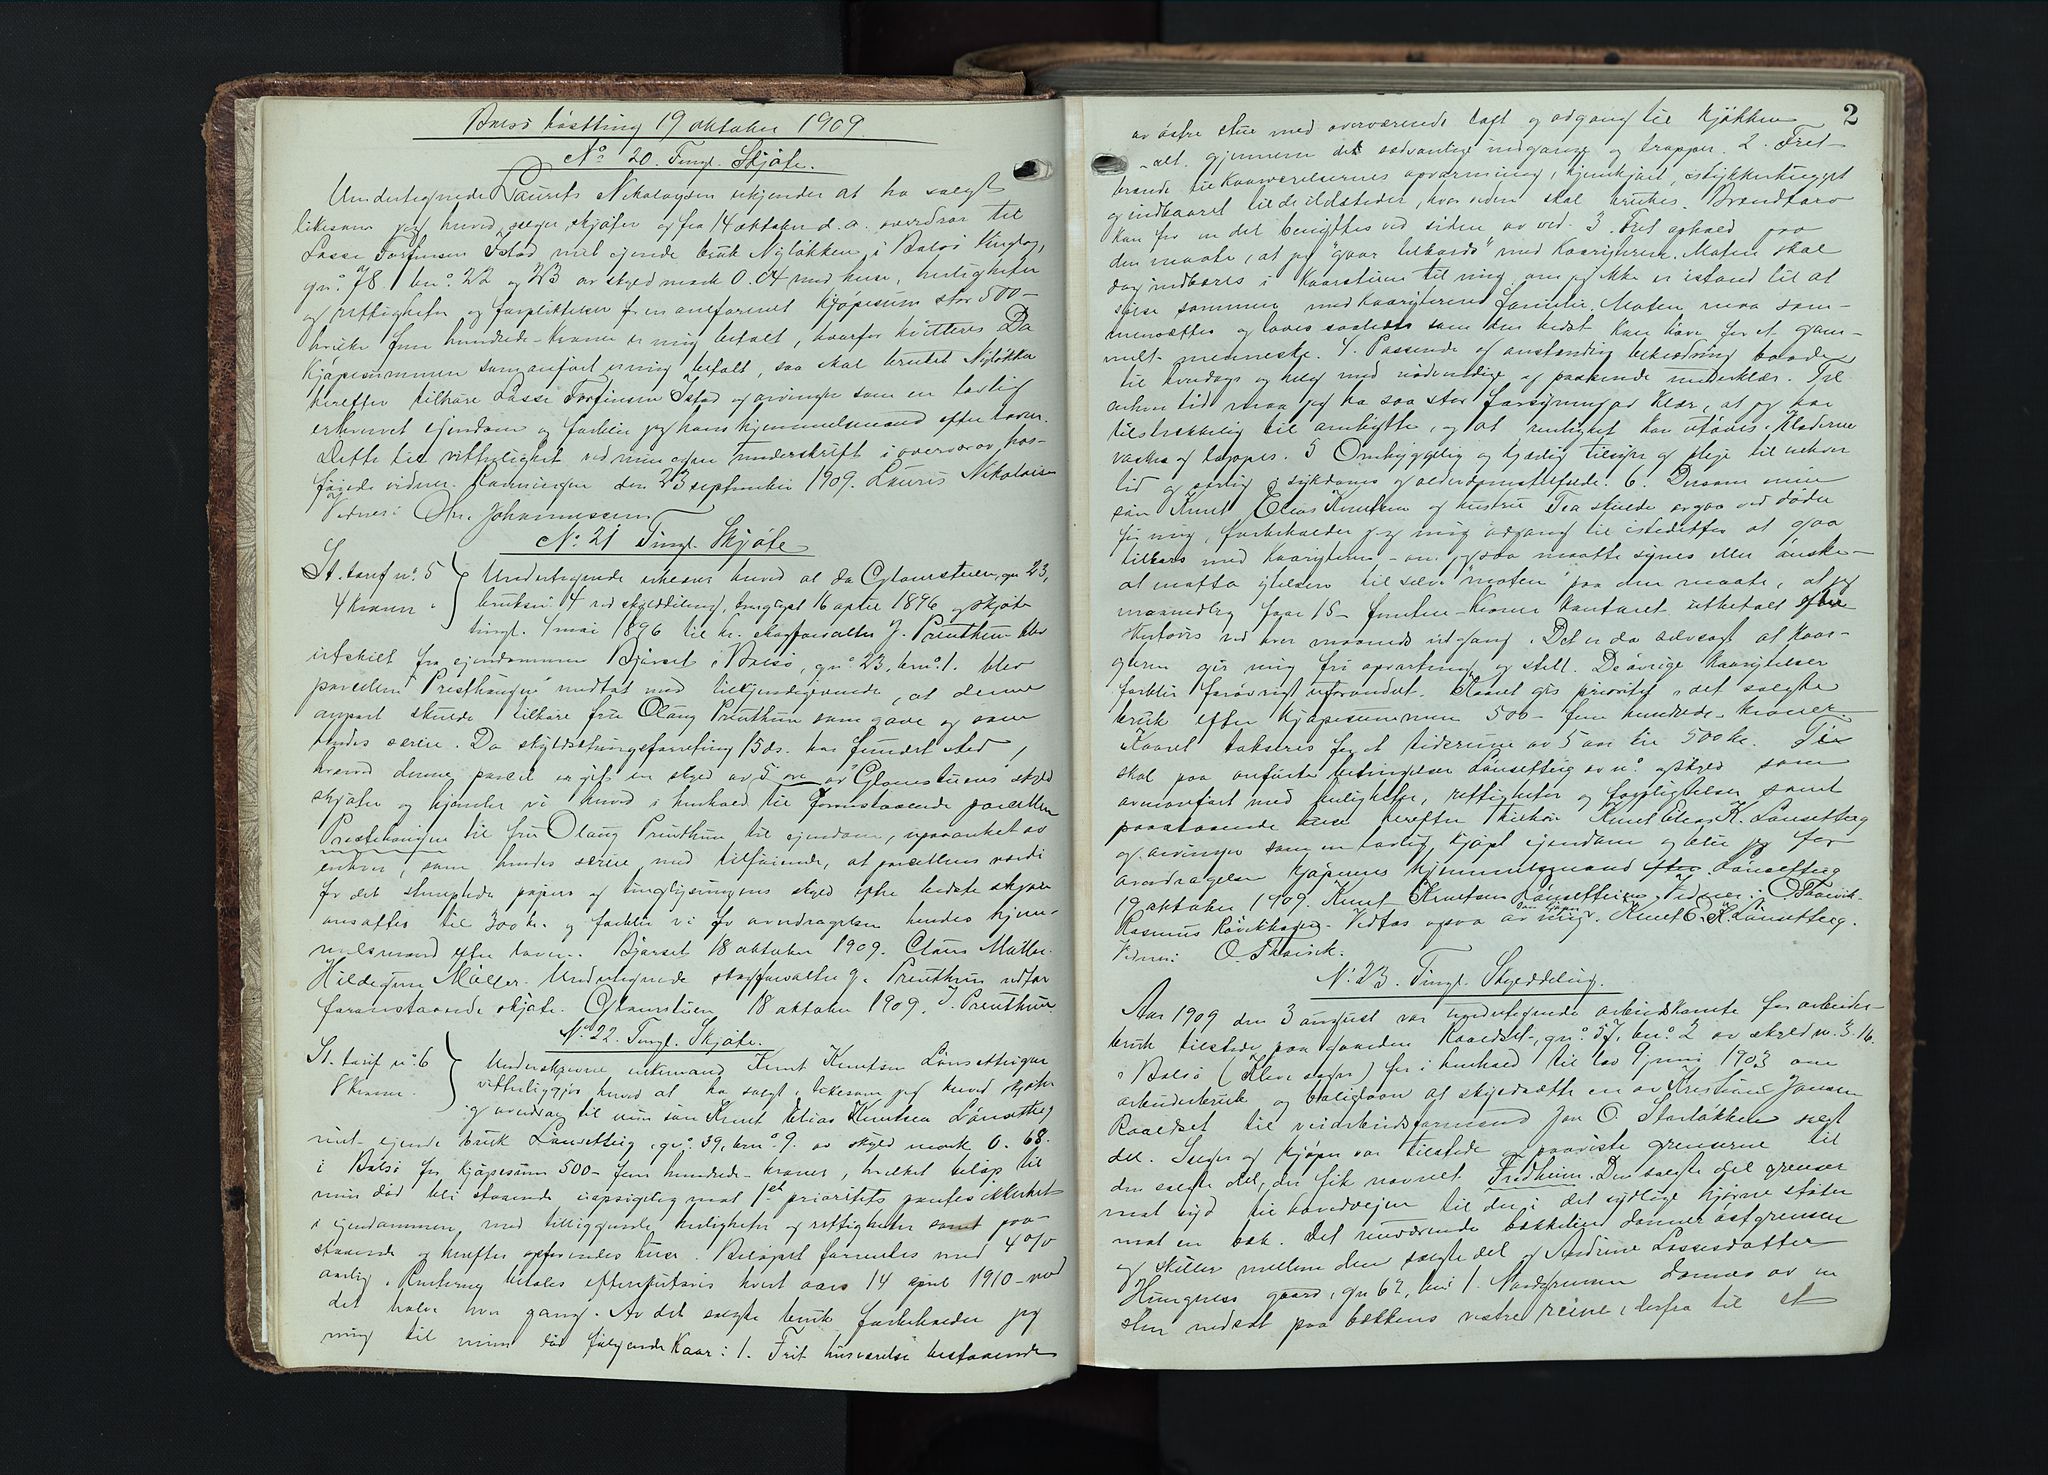 Bolsø høstting 19 oktober 1909.
No 20. Tingl. Skjøte.
Undertegnede Laurits Nikolaysen erkjender at ha solgt
likesom jeg herved sælger, skjøter og fra 14 oktober d. a. overdrar til
Lasse Torfinsen Istad mit eiende bruk Nyløkken i Bolsø tinglag,
gno 78. bno 22 og 23 av skyld mark 0.04 med huse, herligheter
og rettigheter og forpliktelser for en omforenet kjøpesum stor 500-
hvilke fem hundrede - Kroner er mig betalt, hvorfor kvitteres. Da
kjøpesummen som anført er mig betalt, saa skal bruket Nyløkken
herefter tilhøre Lasse Torfinsen Istad og arvinger som en lovlig
erhvervet eiendom og forblir jeg hans hjemmelsmand efter loven.
Dette til vitterlighet ved min egen underskrift i overvær av hos-
føiede vidner. den 23 september 1909. Laurits Nikolaisen
Vidner: Chr. Johannessen
No 21 Tingl. Skjøte
St. tarif no. 5 Undertegnede erkjender herved at da Glomstuen, gn 23,
4 Kroner. bruksn. 14 ved skylddeling, tinglyst 16 april 1896 og skjøte
tingl. 4 mai 1896 til hr. skogforvalter J. Preuthun blev
utskilt fra eiendommen Bjørset i Bolsø, gno 23. bno 1. blev
parcellen "Presthaugen" medtat med tilkjendegivende, at denne
anpart skulde tilhøre frue Olaug Preuthun som gave og som
hendes særeie. Da skyldsætningsforretning 15 ds. har fundet sted,
hvorved denne parcel er git en skyld av 5 øre av Glomstuens skyld
skjøter og hjemler vi herved i henhold til foranstaaende parcellen
Præstehaugen til fru Olaug Preuthun til eiendom, upaaanket av
enhver, som hendes særeie med tilføiende, at parcellens værdi
for det stemplede papirs og tinglysningens skyld efter bedste skjøn
ansættes til 300 kr. og forblir vi for overdragelsen hendes hjem-
melsmænd efter loven. Bjørset 18 oktober 1909. Claus Møller.
Hildegun Møller. Undertegnede skogforvalter J. Preuthun vedtar
foranstaaende skjøte. Glomstuen 18 oktober 1909. J. Preuthun.
No 22. Tingl. Skjøte.
St. tarif no. 6 Underskrevne enkemand Knut Knutsen Lønsetteigen
8 Kroner. vitterliggjør herved at ha solgt, likesom jeg herved skjøter
og overdrag til min søn Knut Elias Knutsen Lønsetteig
mit eiende bruk Lønsetteig, gno 39, bno 9. av skyld mark 0.68.
i Bolsø for kjøpesum 500 - fem hundrede - kroner, hvilket beløp til
min død bli staaende uopsigelig mot 1ste prioritets pantesikkerhet
i eiendommen, med tilliggende herligheter og rettigheter samt paa-
staaende og herefter opførendes huse. Beløpet forrentes med 4%
aarlig. Renterne betales efterskudsvis hvert aars 14 april 1910 - med
det halve hver gang. Av det solgte bruk forbeholder jeg
mig til min død følgende Kaar: 1. Frit husværelse bestaaende
2
av østre stue med overværende loft og adgang til kjøkken
- alt gjennem de sedvanlige nedgange og trapper. 2. Frit
brænde til Kaarværelsernes opvarmning, hjemkjørt, istykkerhugget
og indbaaret til de ildsteder, hvor veden skal brukes. Brændtorv
kan for en del benyttes ved siden av ved. 3. Frit ophold paa
den maate, at jeg "gaar tilbords" med Kaaryterne. Maten skal
dog indbæres i Kaarstuen til mig, om jeg ikke er istand til at
spise sammen med kaaryterens familie. Maten maa sam-
mensættes og laves saaledes som den bedst kan høve for et gam-
melt menneske. 4. Passende og anstændig beklædning baade
til hverdags og helg med nødvendige og passende underklær. Til
enhver tid maa jeg ha saa stor forsyning av klær, at jeg har
tilstrekkelig til ombytte, og at renlighet kan utøves. Klæderne
vaskes og lappes. 5 Omhyggelig og kjærlig tilsyn og pleie til enhver
tid og særlig i sykdoms og alderdomstilfælde. 6. Dersom min
søn Knut Elias Knutsen og hustru Tea skulde avgaa ved døden
før mig, forbeholder jeg mig adgang til istedetfor at gaa
tilbords med kaaryterne - om jeg saa maatte synes eller ønske -
at motta ydelsen til selve "maten" paa den maate, at jeg
maanedlig faar 15 - femten - kroner kontant utbetalt efter-
skudsvis ved hver maaneds utgang. Det er da selvsagt at Kaar-
giveren gir mig fri opvartning og stell. De øvrige kaarytelser
forblir forøvrigt uforandret. Kaaret gis prioritet i det solgte
bruk efter kjøpesummen 500 - fem hundrede - kroner.
Kaaret takseres for et tidsrum av 5 aar til 500 kr.
skal paa anførte betingelser Lønsetteig av no og skyld som
ovenanført med herligheter, rettigheter og forpligtelser samt
paastaaende huse herefter tilhøre Knut Elias K. Lønsetteig
og arvinger som en lovlig kjøpt eiendom og blir jeg for
overdragelsen kjøperens hjemmelsmand. Lønsetteig
19 oktober 1909. Knut Knutsen Lønsetteigen. Vidner: O Thorvik.
Rasmus Røvikhagen. Vedtas ogsaa av mig som kjøper. Knut E. K. Lønsetteig.
Vidner: O. Thorvik.
No 23. Tingl. Skylddeling.
Aar 1909 den 3 august var undertegnede arbeidskomite for arbeider-
bruk tilstede paa gaarden Raaedset, gno 57, bno 2 av skyld m. 3.16.
i Bolsø (Kleve sogn) for i henhold til lov 9 juni 1903 om
arbeiderbruk og boliglaan at skyldsætte en av Kristian Jonsen
Raaedset til veiarbeidsformand Jon O. Storløkken solgt
del. Sælger og kjøper var tilstede og paaviste grenserne til
den solgte del, der fik navnet Fredheim. Den solgte del grenser
mot syd til hovedveien til den i det sydlige hjørne støter
mot en bæk. Det nuværende bækkeleie danner østgrensen
og skiller mellem den solgte del og Andrine Lassesdatter
Hungnes gaard, gn 62, bn 1. Nordgrensen dannes av en
sten nedsat paa bækkens vestre side, derfra til et